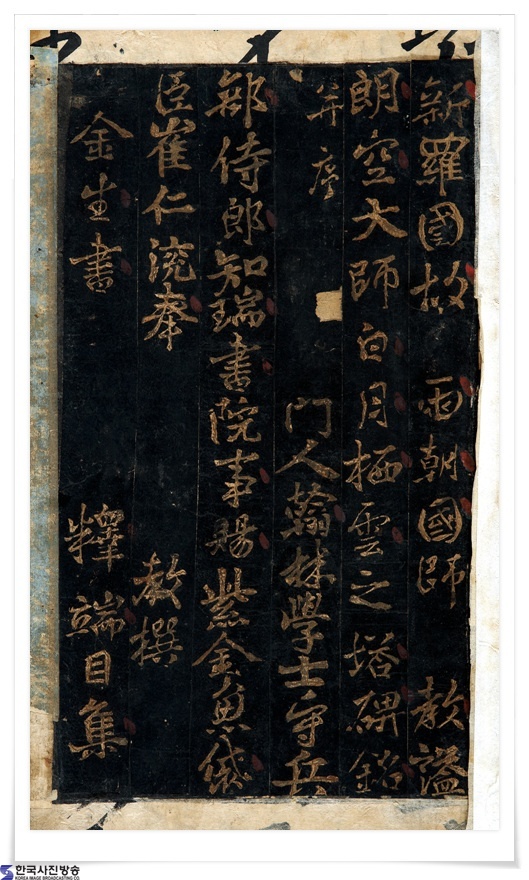 新羅國故 兩朝國師 教謚
朗空大師白月栖雲之塔碑銘
并序 門人翰林學士守兵
部侍郎知瑞書院事賜紫金魚袋
臣崔仁渷奉 教撰
金生書 釋端目集
한국사진방송
KOREA IMAGE BROADCASTING CO.